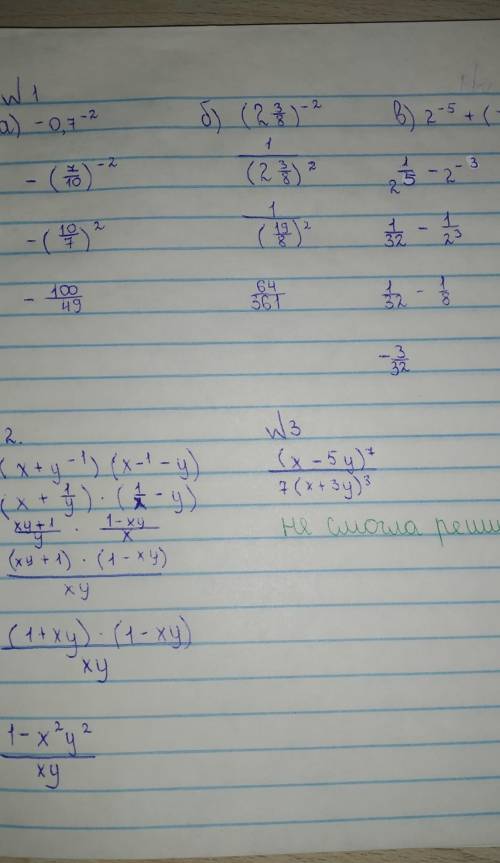 №1
а) -0,7⁻²
-(7/10)⁻²
-(10/7)²
-100/49
б) (2 3/8)⁻²
1/(2 3/8)²
1/(19/8)²
64/361
в) 2⁻⁵ + (-
1/2⁵ - 2⁻³
1/32 - 1/2³
1/32 - 1/8
-3/32
2.
(x + y⁻¹) (x⁻¹ - y)
(x + 1/y) · (1/x - y)
(xy+1)/y · (1-xy)/x
((xy+1) · (1-xy))/xy
((1+xy) · (1-xy))/xy
(1-x²y²)/xy
№3
(x - 5y)⁷/7(x+3y)³
не смогла реши